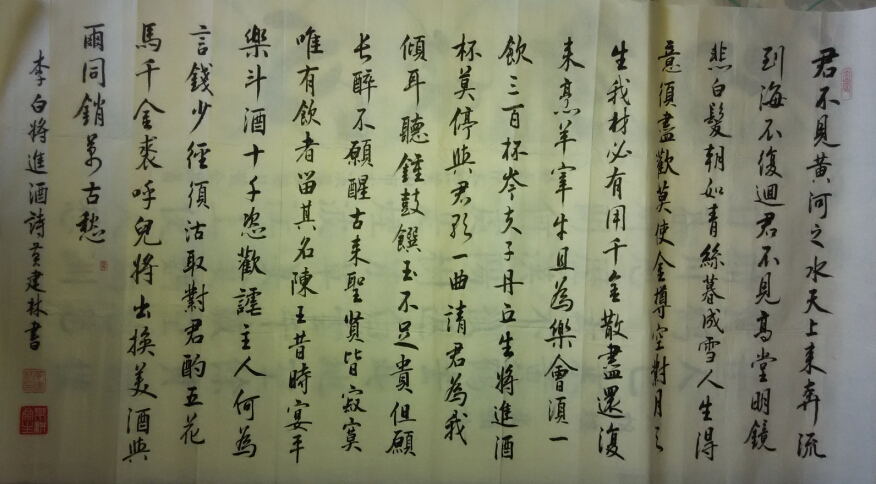 君不見黃河之水天上來奔流
到海不復迴君不見高堂明鏡
悲白髮朝如青絲暮成雪人生得
意須盡歡莫使金樽空對月天
生我材必有用千金散盡還復
来烹羊宰牛且為樂會須一
飲三百杯岑夫子丹丘生將進酒
杯莫停與君歌一曲請君為我
傾耳聽鐘鼓饌玉不足貴但願
長醉不願醒古来聖賢皆寂寞
唯有飲者留其名陳王昔時宴平
樂斗酒十千恣歡謔主人何為
言錢少經須沽取對君酌五花
馬千金裘呼兒將出換美酒與
爾同銷萬古愁
李白將進酒詩黃建林書